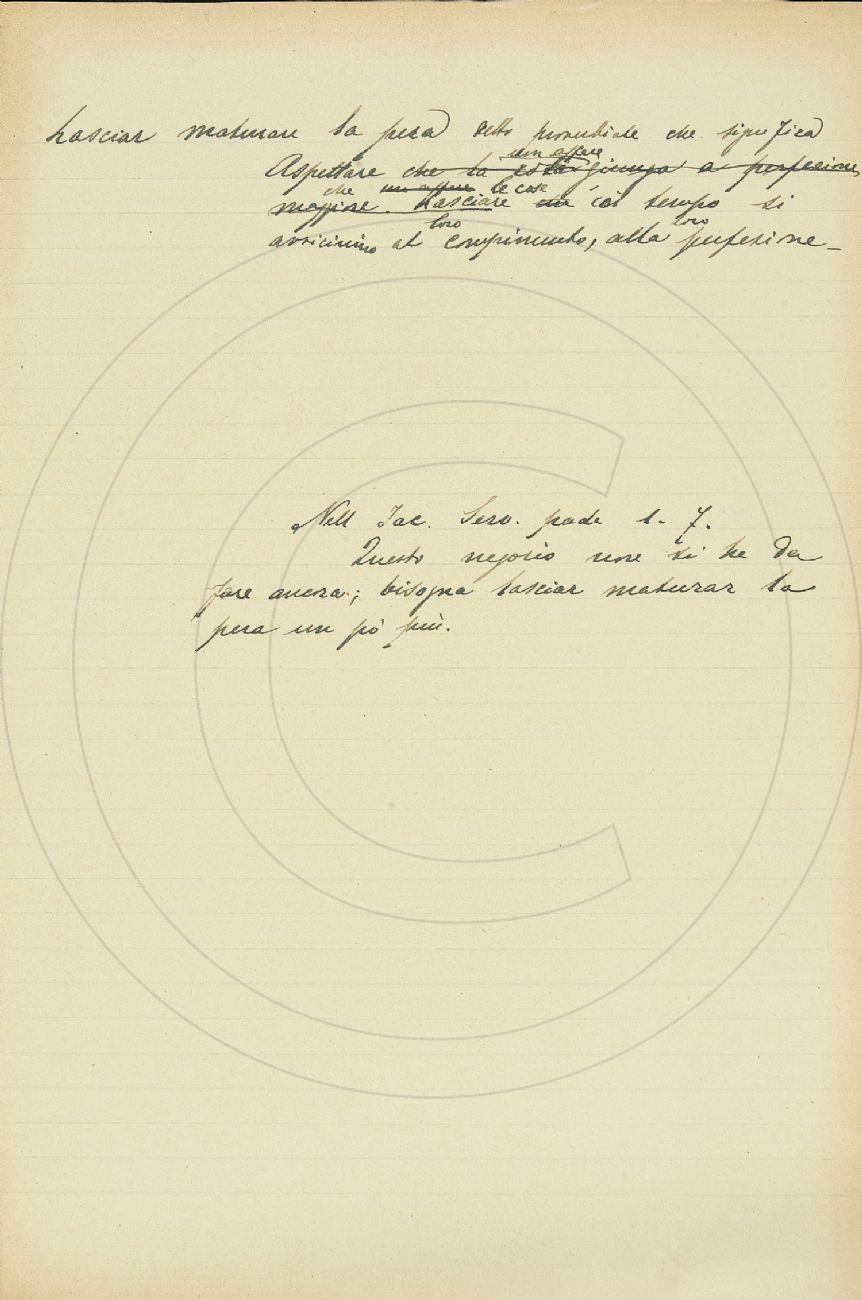 Lasciar maturare la pera) detto proverbiale che significa
un affare
Aspettare che la cosa giunga a perfezione
che un affare le cose
maggiore. Lasciare col tempo si
loro loro
avvicinino al compimento, alla perfezione_
Nell Iac. Serv. 1. 7.
Questo negozio non si ha da
fare ancora; bisogna lasciar maturar la
pera un pò più.